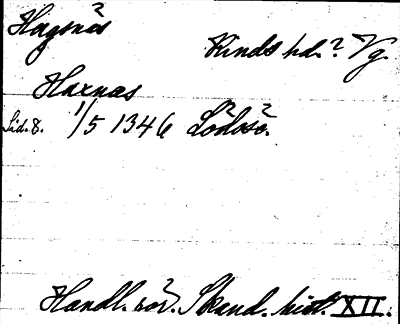 Hagsnäs Kinds hd.? Vg.
Haxnas
Sid. 8. 1/5 1346 Lödöse.
Handl. rör. Skand. hist. XII.